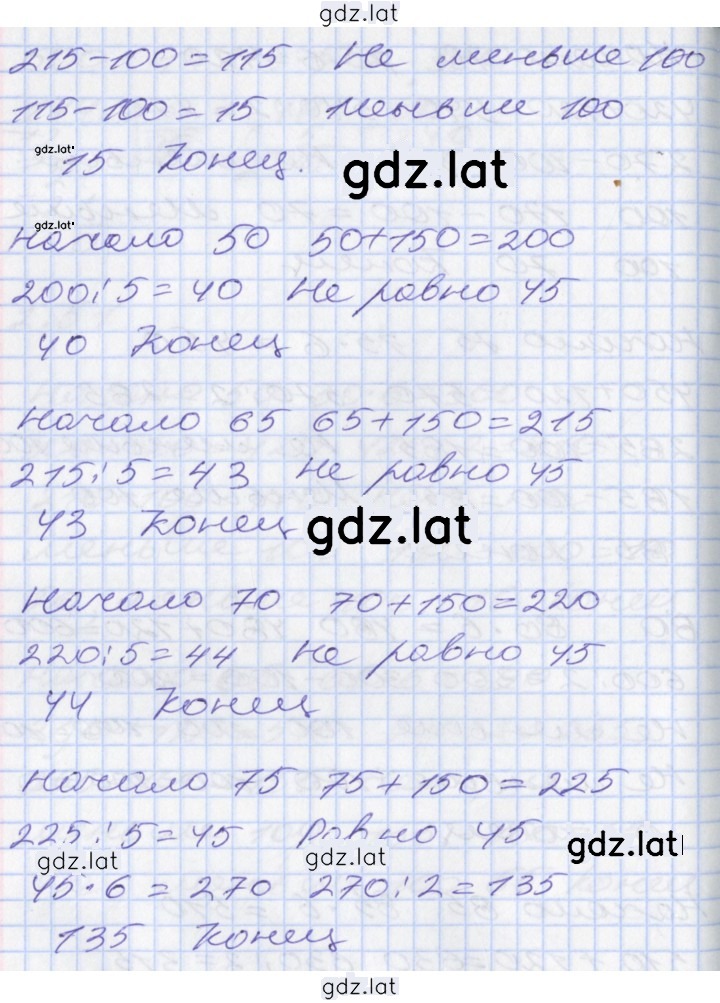 gdz.lat
215-100=115 Не меньше 100
115-100=15 меньше 100
gdz.lat
15 Конец.
gdz.lat
gdz.lat
Начало 50 50+150=200
200:5=40 Не равно 45
40 Конец
Начало 65 65+150=215
215:5=43 Не равно 45
43 Конец
gdz.lat
Начало 70 70+150=220
220:5=44 Не равно 45
44 Конец
Начало 75 75+150=225
225:5=45 Равно 45
gdz.lat
gdz.lat
gdz.lat
45·6=270 270:2=135
135 Конец
gdz.lat